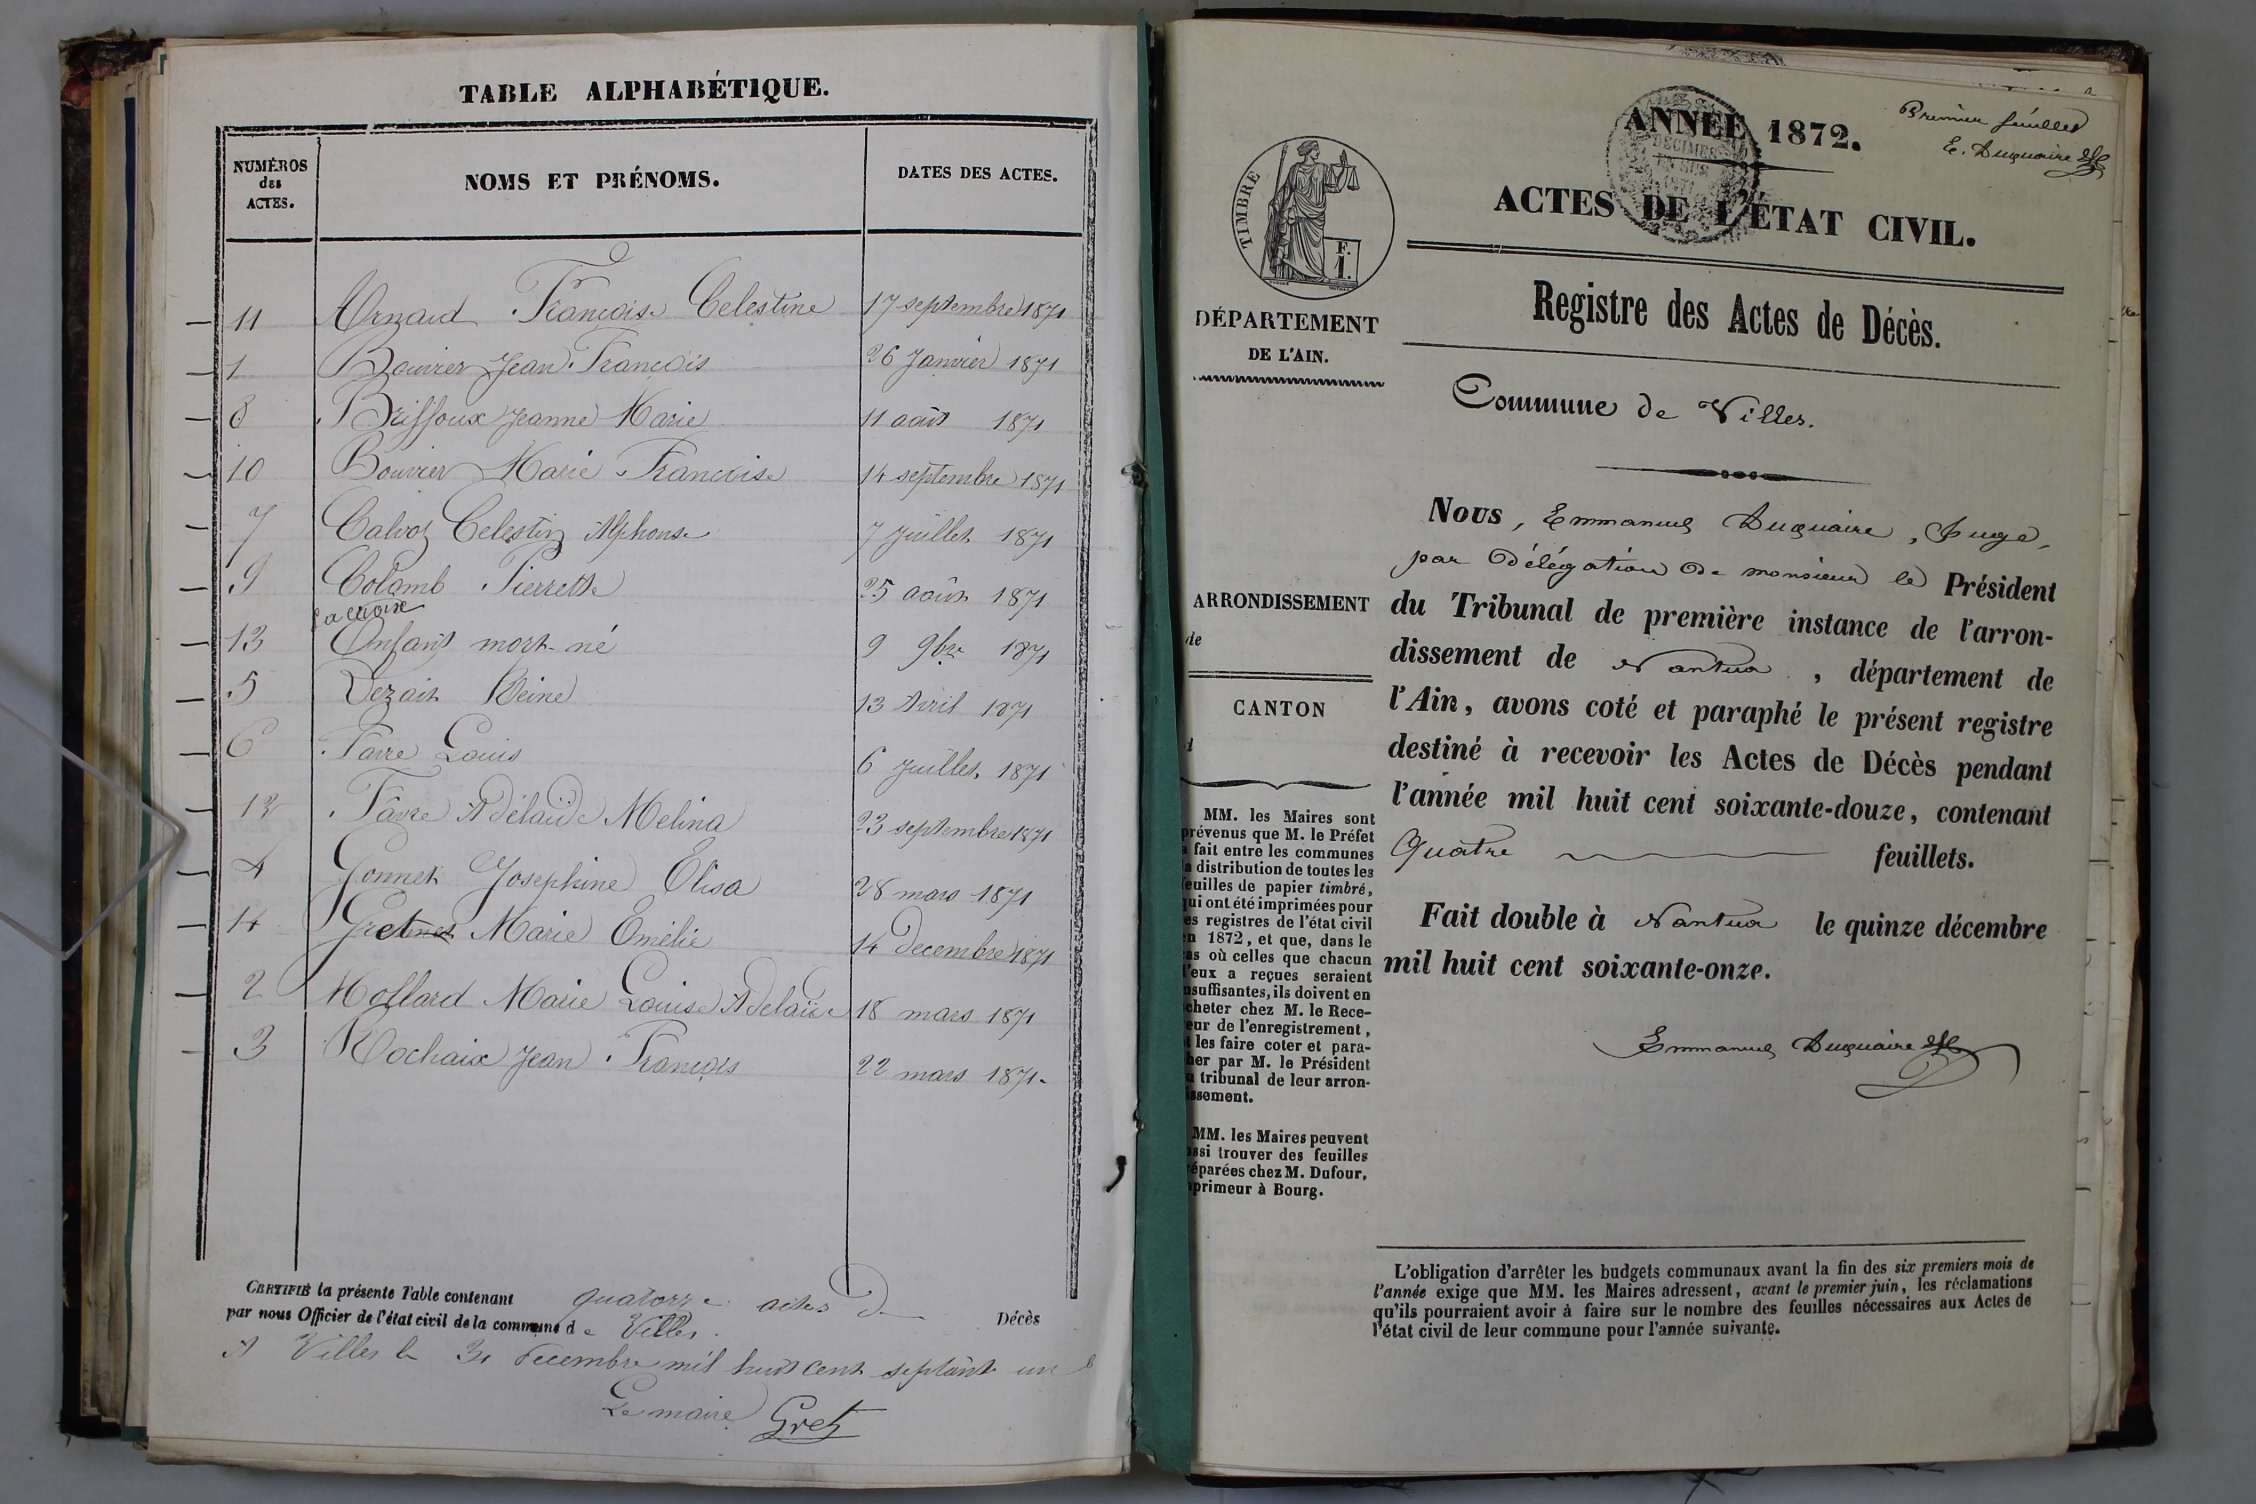 TABLE ALPHABÉTIQUE.
NUMÉROS des ACTES.
NOMS ET PRÉNOMS.
DATES DES ACTES.
11 Françoise Celestine 17 septembre 1871
1 Bouvier Jean François 26 Janvier 1871
8 Briffoux Jeanne Marie 11 août 1871
10 Bouvier Marie Françoise 14 septembre 1871
7 Celestin Alphonse 7 Juillet 1871
9 Colomb Pierrette 25 août 1871
Lacroix
13 Enfant mort-né 9 9bre 1871
5 Reine 13 Avril 1871
6 Favre Louis 6 Juillet 1871
12 Favre Adélaïde Melina 23 septembre 1871
4 Gonnet Josephine Elisa 28 mars 1871
14 Marie Emélie 14 decembre 1871
2 Mollard Marie Louise Adelaïde 18 mars 1871
3 Rochaix Jean François 22 mars 1871.
CERTIFIÉ la présente Table contenant quatorze actes de Décès
par nous Officier de l'état civil de la commune de Villes.
A Villes le 31 decembre mil huit cent septante un
Le maire Gret
Premier feuillet
E. Duquaire
ANNÉE 1872.
ACTES DE L'ÉTAT CIVIL.
TIMBRE
F.
1.
Registre des Actes de Décès.
DÉPARTEMENT
DE L'AIN.
Commune de Villes.
Nous, Emmanuel Duquaire, Juge,
par Délégation de monsieur le Président
du Tribunal de première instance de l'arron-
dissement de Nantua, département de
l'Ain, avons coté et paraphé le présent registre
destiné à recevoir les Actes de Décès pendant
l'année mil huit cent soixante-douze, contenant
Quatre feuillets.
Fait double à Nantua le quinze décembre
mil huit cent soixante-onze.
Emmanuel Duquaire
ARRONDISSEMENT
de
CANTON
d
MM. les Maires sont
prévenus que M. le Préfet
a fait entre les communes
la distribution de toutes les
feuilles de papier timbré,
qui ont été imprimées pour
les registres de l'état civil
en 1872, et que, dans le
cas où celles que chacun
d'eux a reçues seraient
insuffisantes, ils doivent en
acheter chez M. le Rece-
veur de l'enregistrement,
et les faire coter et para-
pher par M. le Président
du tribunal de leur arron-
dissement.
MM. les Maires peuvent
aussi trouver des feuilles
préparées chez M. Dufour,
imprimeur à Bourg.
L'obligation d'arrêter les budgets communaux avant la fin des six premiers mois de
l'année exige que MM. les Maires adressent, avant le premier juin, les réclamations
qu'ils pourraient avoir à faire sur le nombre des feuilles nécessaires aux Actes de
l'état civil de leur commune pour l'année suivante.